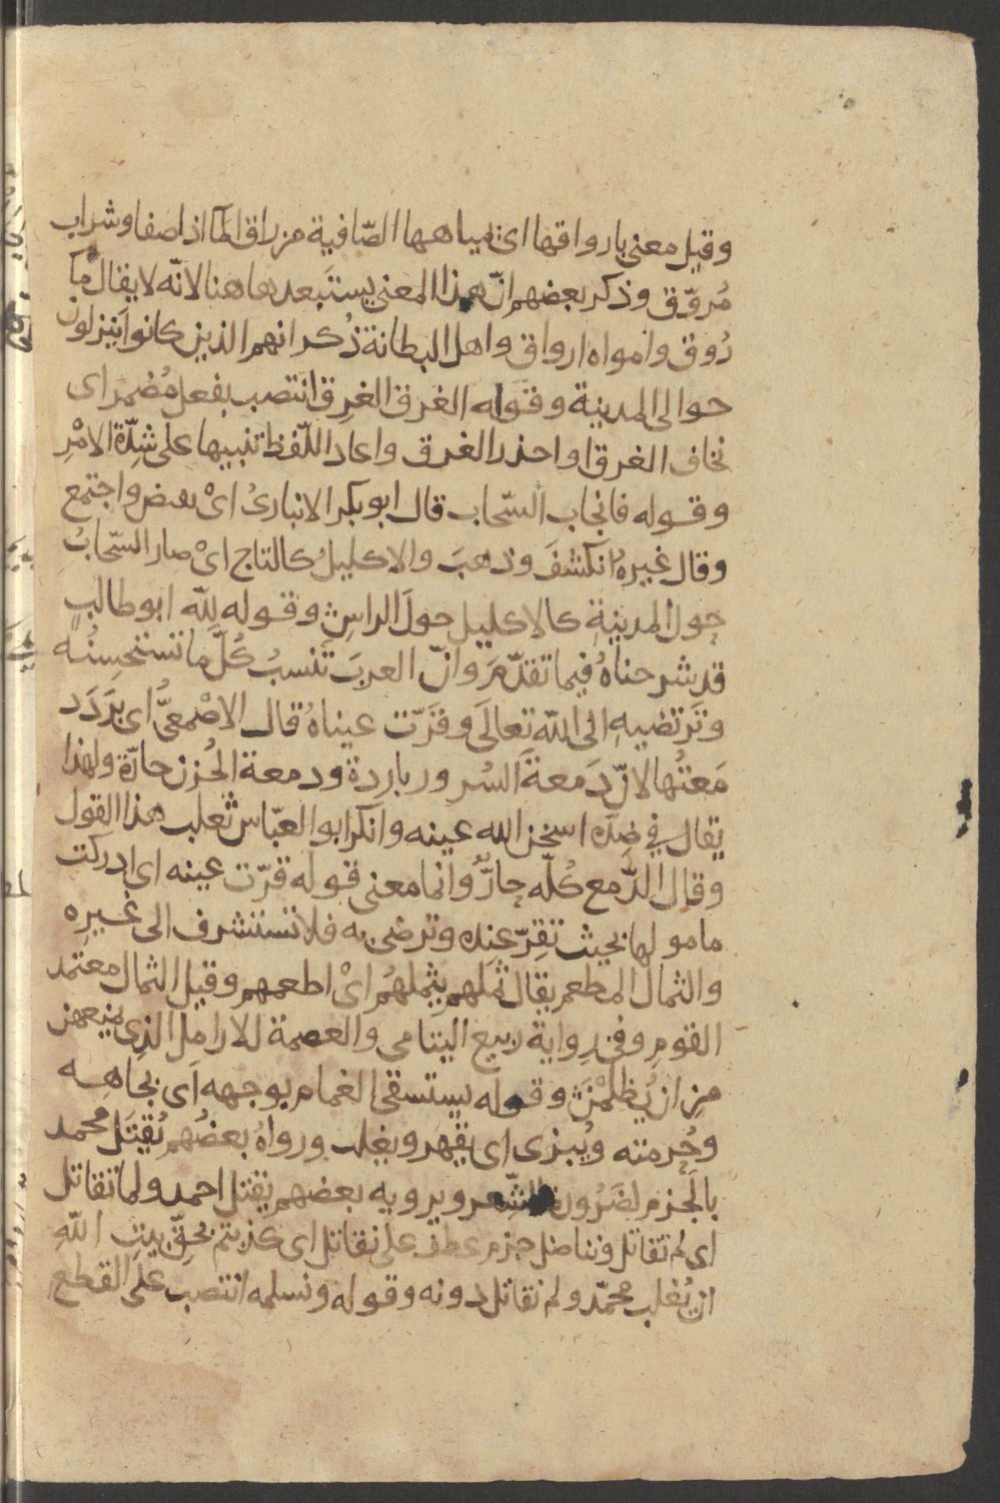 وقيل معنى بارواقها اى بمياهها الصّافية من راق الما اذا صفا وشراب
مُروّق وذكر بعضهم انّ هذا المعنى يستبعد هاهنا لانّه لا يقال ما
رُوق وامواه ارواق واهل البطانة ذُكر انهم الذين كانوا ينزلون
حوالى المدينة وقوله الغرق الغرق انتصب بفعل مُضمر اى
نخاف الغرق او احذر الغرق واعاد اللّفظ تنبيها على شدّة الامْرِ
وقوله فانجاب السّحاب قال ابو بكر الانبارىُ اىْ بعض واجتمع
وقال غيرهُ انكشفَ وذهبَ والاكليلُ كالتاج اىْ صار السّحابُ
حول المدينةِ كالاكليل حولَ الراسِ وقوله للّه ابو طالبٍ
قد شرحناهُ فيما تقدّمَ وانّ العربَ تَنسبُ كُلّ ما تستحسِنُه
وتَرتضيهِ الى اللّه تعالَى وقَرّت عيناهُ قال الاصْمعىُّ اى بَرَدَ د
مَعتُها لانّ دَمعةَ السُرور باردة ودمعة الحُزن حارّة ولهذا
يقال في ضِدّه اسخن الله عينه وانكر ابو العبّاس ثعلب هذا القول
وقال الدّمع كُلّه حارٌّ وانما معنى قوله قرّت عينه اى ادركت
مامولها بحيث تَقِرّ عنده وترضى به فلا تستشرف الى غيرِه
والثمال المطعم يقال ثملهم يثملهُم اىْ اطعمهم وقيل الثمال معتمد
القومِ وفى رِواية ربيع اليتامى والعصمة للارامل الذى يمنعهن
مِن ان يُظلمْنَ وقوله يستسقى الغمام بوجهه اى بجاهِه
وحُرمته ويُبزى اى يقهر ويغلب ورواهُ بعضُهم نُقتَل محمد
بالجَزم لضَرُورة الشّعر ويرويه بعضهم يقتل احمد ولما تقاتل
اى لم تقاتل ونناضل جزم عطف على نقاتل اى كذبتم بحقّ بيتِ اللّهِ
ان يُغلب محمّد ولم نقاتل دونه وقوله ونسلمه انتصب على القطع